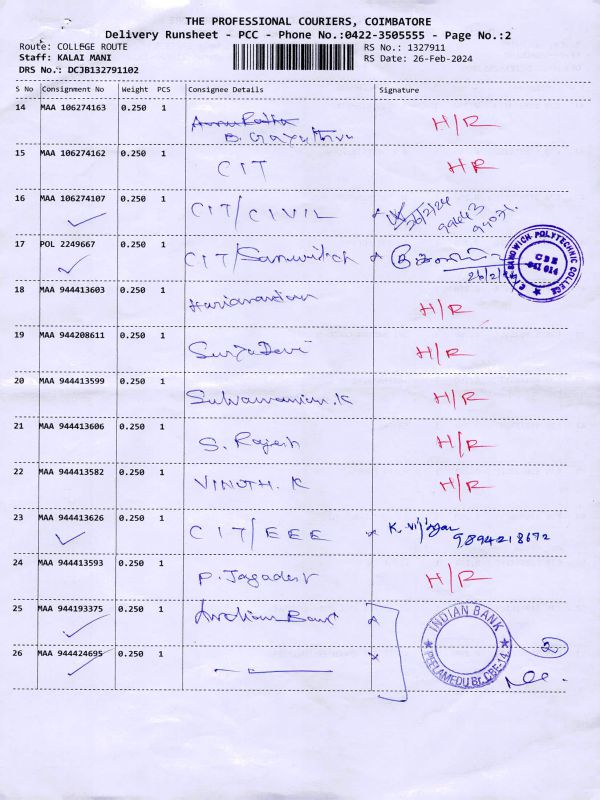 THE PROFESSIONAL COURIERS, COIMBATORE
Delivery Runsheet - PCC - Phone No.:0422-3505555 - Page No.:2
Route: COLLEGE ROUTE RS No.: 1327911
Staff: KALAI MANI RS Date: 26-Feb-2024
DRS No.: DCJB132791102
S No Consignment No Weight PCS Consignee Details Signature
14 MAA 106274163 0.250 1 H/R
B. Gayathri
15 MAA 106274162 0.250 1 CIT HR
16 MAA 106274107 0.250 1 CIT/CIVIL 26/2/24
17 POL 2249667 0.250 1 CIT/Sandwitch 26/2/24
SANDWICH POLYTECHNIC COLLEGE
CBE
641 014
18 MAA 944413603 0.250 1 H/R
19 MAA 944208611 0.250 1 Surya Devi H/R
20 MAA 944413599 0.250 1 H/R
21 MAA 944413606 0.250 1 S. Rajesh H/R
22 MAA 944413582 0.250 1 VINOTH. K H/R
23 MAA 944413626 0.250 1 CIT/EEE K. 9894218672
24 MAA 944413593 0.250 1 P. Jagadesh H/R
25 MAA 944193375 0.250 1 Indian Bank
INDIAN BANK
PEELAMEDU Br. CBE-14
2
26 MAA 944424695 0.250 1